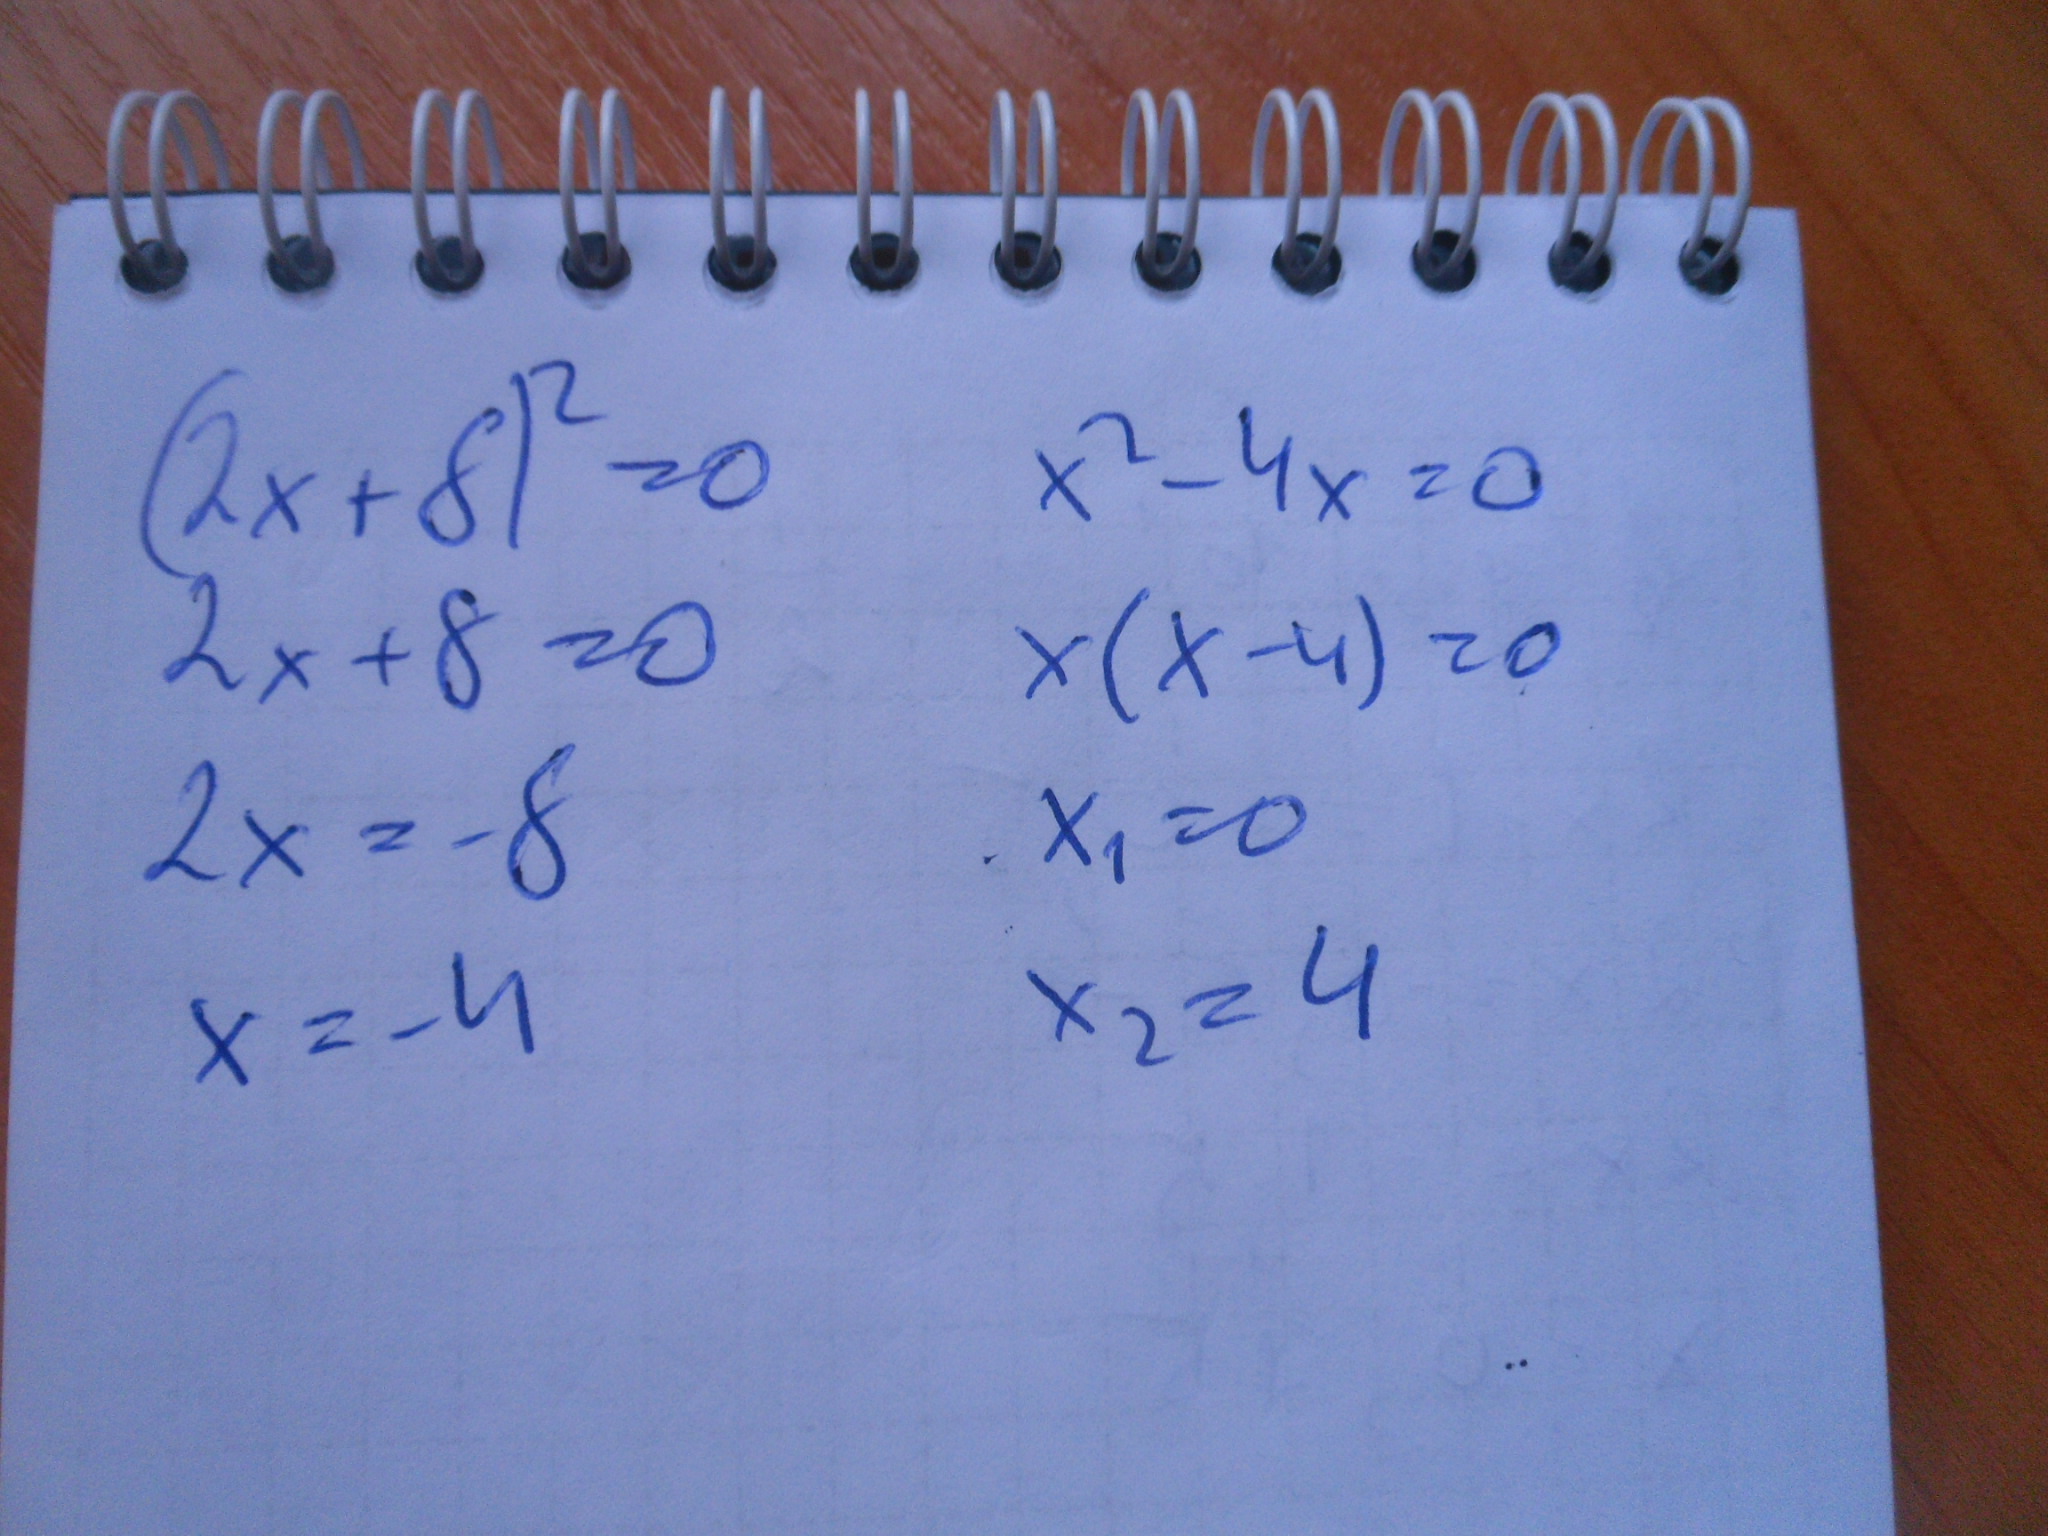 (2x+8)²=0
2x+8=0
2x=-8
x=-4
x²-4x=0
x(x-4)=0
x₁=0
x₂=4